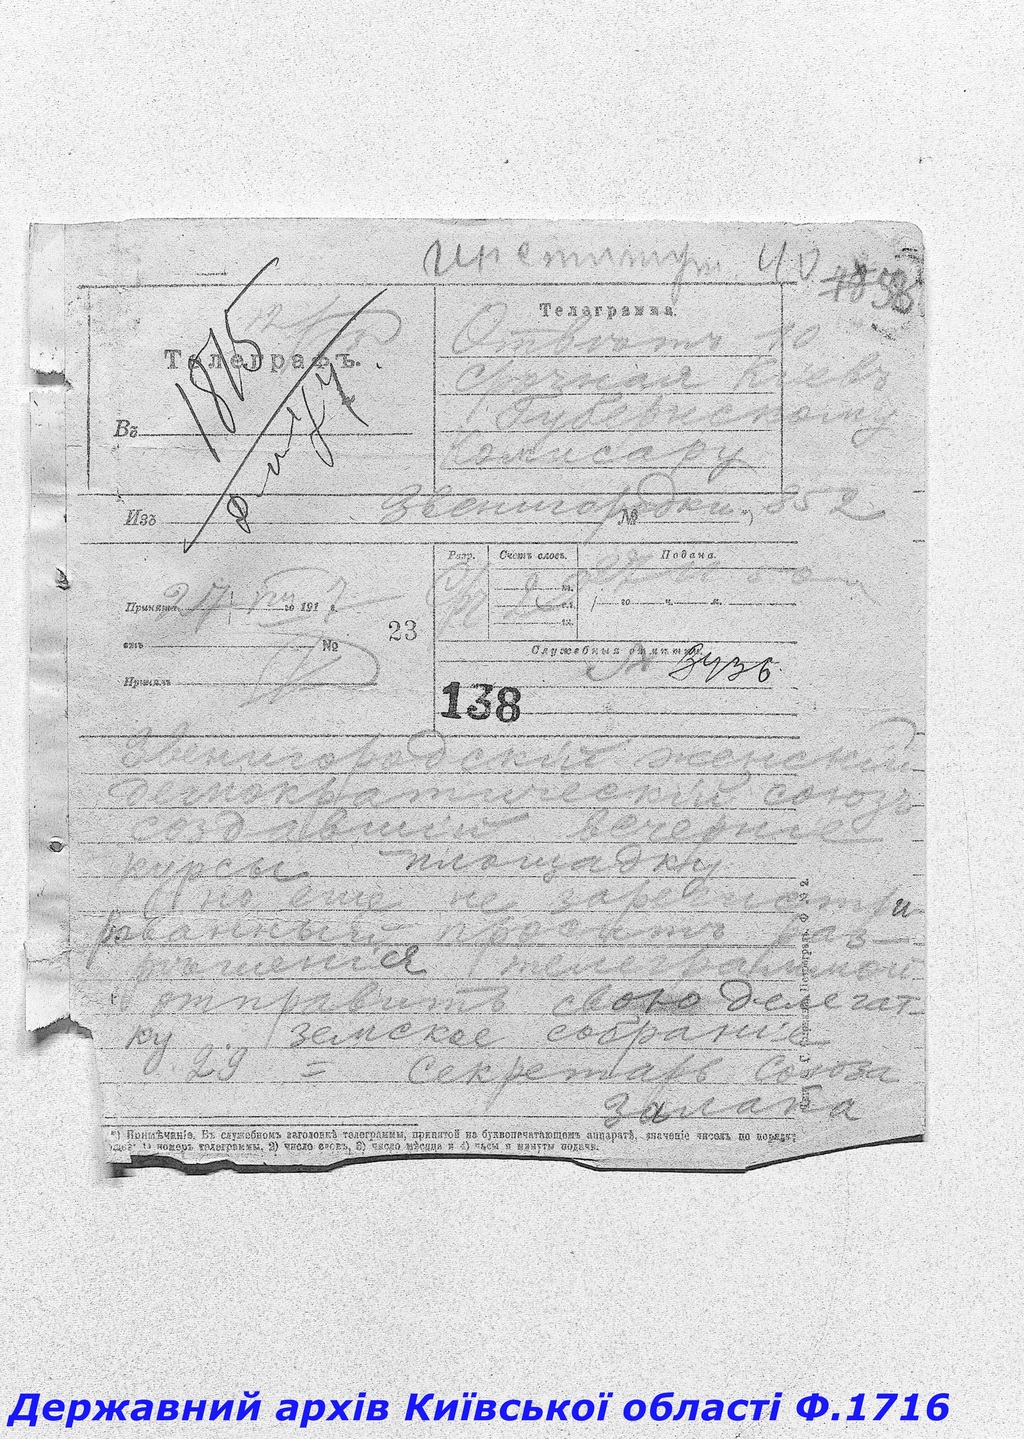 7858
Телеграфъ.
1815
Въ
Телеграмма.
Отвѣтъ 10
Срочная Кіевъ
Губернскому
Комисару
Изъ Звенигородки № *) 352
Принята 27 VIII го 1917 г.
отъ №
Принялъ
23
Разр.
Счетъ словъ.
Подана.
го ч. м.
Служебныя отмѣтки.
138
Звенигородскій женскій
демократическій союзъ
создавшій вечерніе
курсы площадку
но еще не зарегистри
рованный проситъ раз-
рѣшенія телеграммой
отправить свою делегат-
ку земское собраніе
29 = Секретарь Союза
Залака
*) Примѣчаніе. Въ служебномъ заголовкѣ телеграммы, принятой на буквопечатающемъ аппаратѣ, значеніе чиселъ по поряд-
1) номеръ телеграммы, 2) число словъ, 3) число мѣсяца и 4) часы и минуты подачи.
Державний архів Київської області Ф.1716